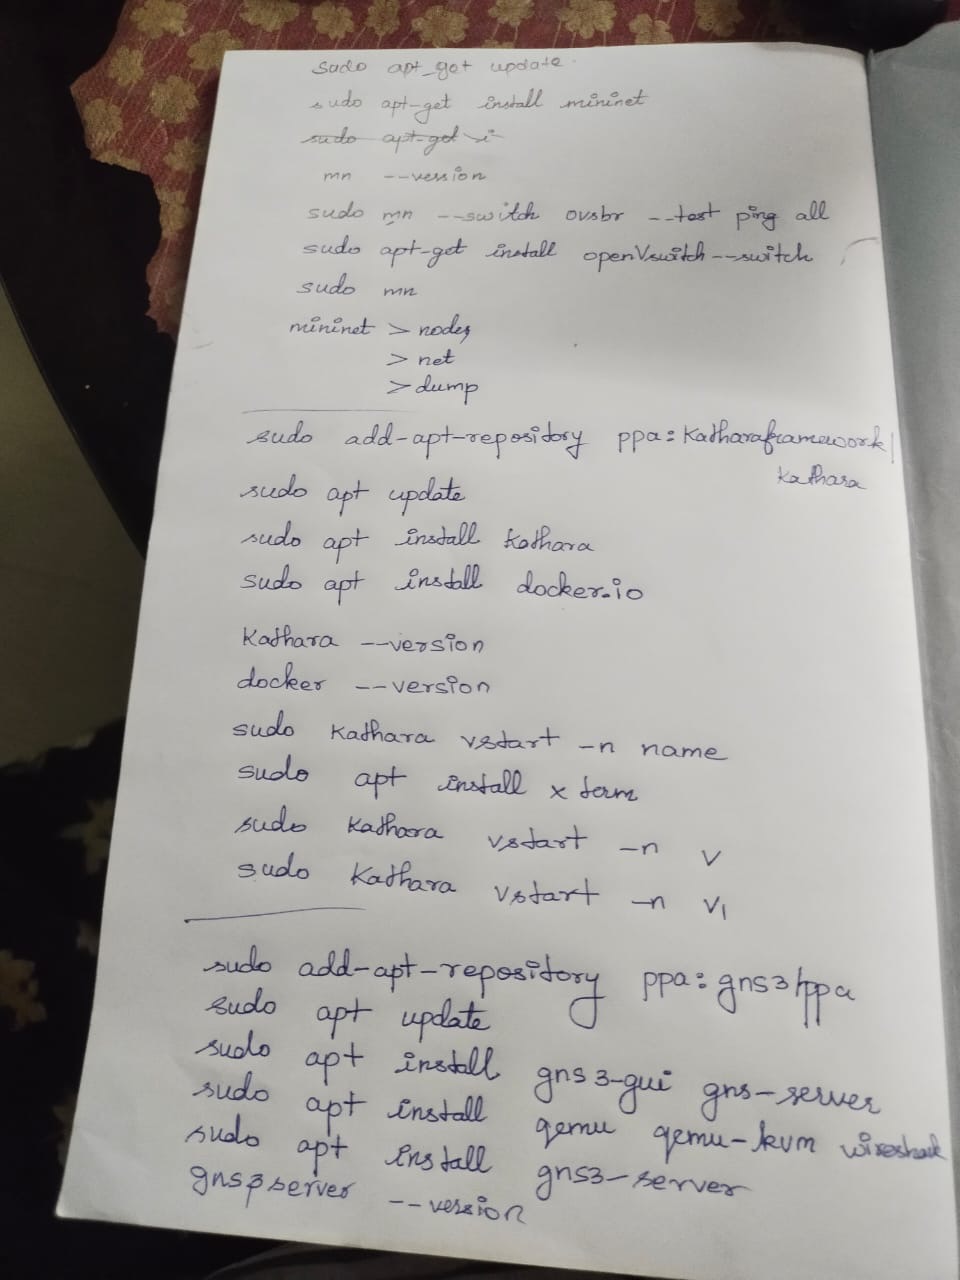 sudo apt-get update
sudo apt-get install mininet
sudo apt-get i
mn --version
sudo mn --switch ovsbr --test ping all
sudo apt-get install openVswitch--switch
sudo mn
mininet > nodes
> net
> dump
sudo add-apt-repository ppa:Katharaframework/
Kathara
sudo apt update
sudo apt install Kathara
sudo apt install docker.io
Kathara --version
docker --version
sudo Kathara vstart -n name
sudo apt install x term
sudo Kathara vstart -n v
sudo Kathara vstart -n v1
sudo add-apt-repository ppa:gns3/ppa
sudo apt update
sudo apt install gns3-gui gns-server
sudo apt install qemu qemu-kvm wireshark
sudo apt install gns3-server
gns3server --version